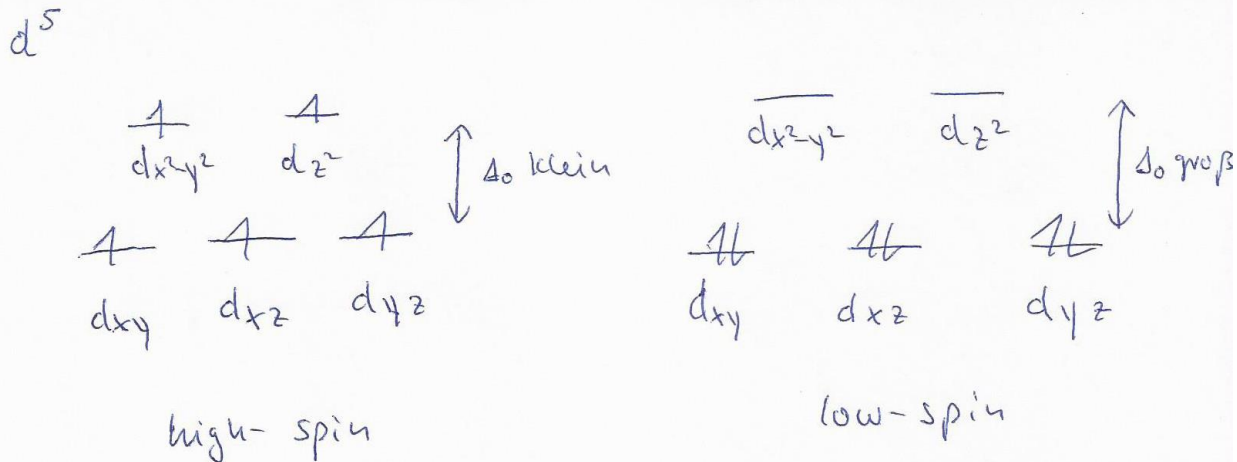 d⁵
dx²-y² dz² Δ₀ klein
dxy dxz dyz
high-spin
dx²-y² dz² Δ₀ groß
dxy dxz dyz
low-spin